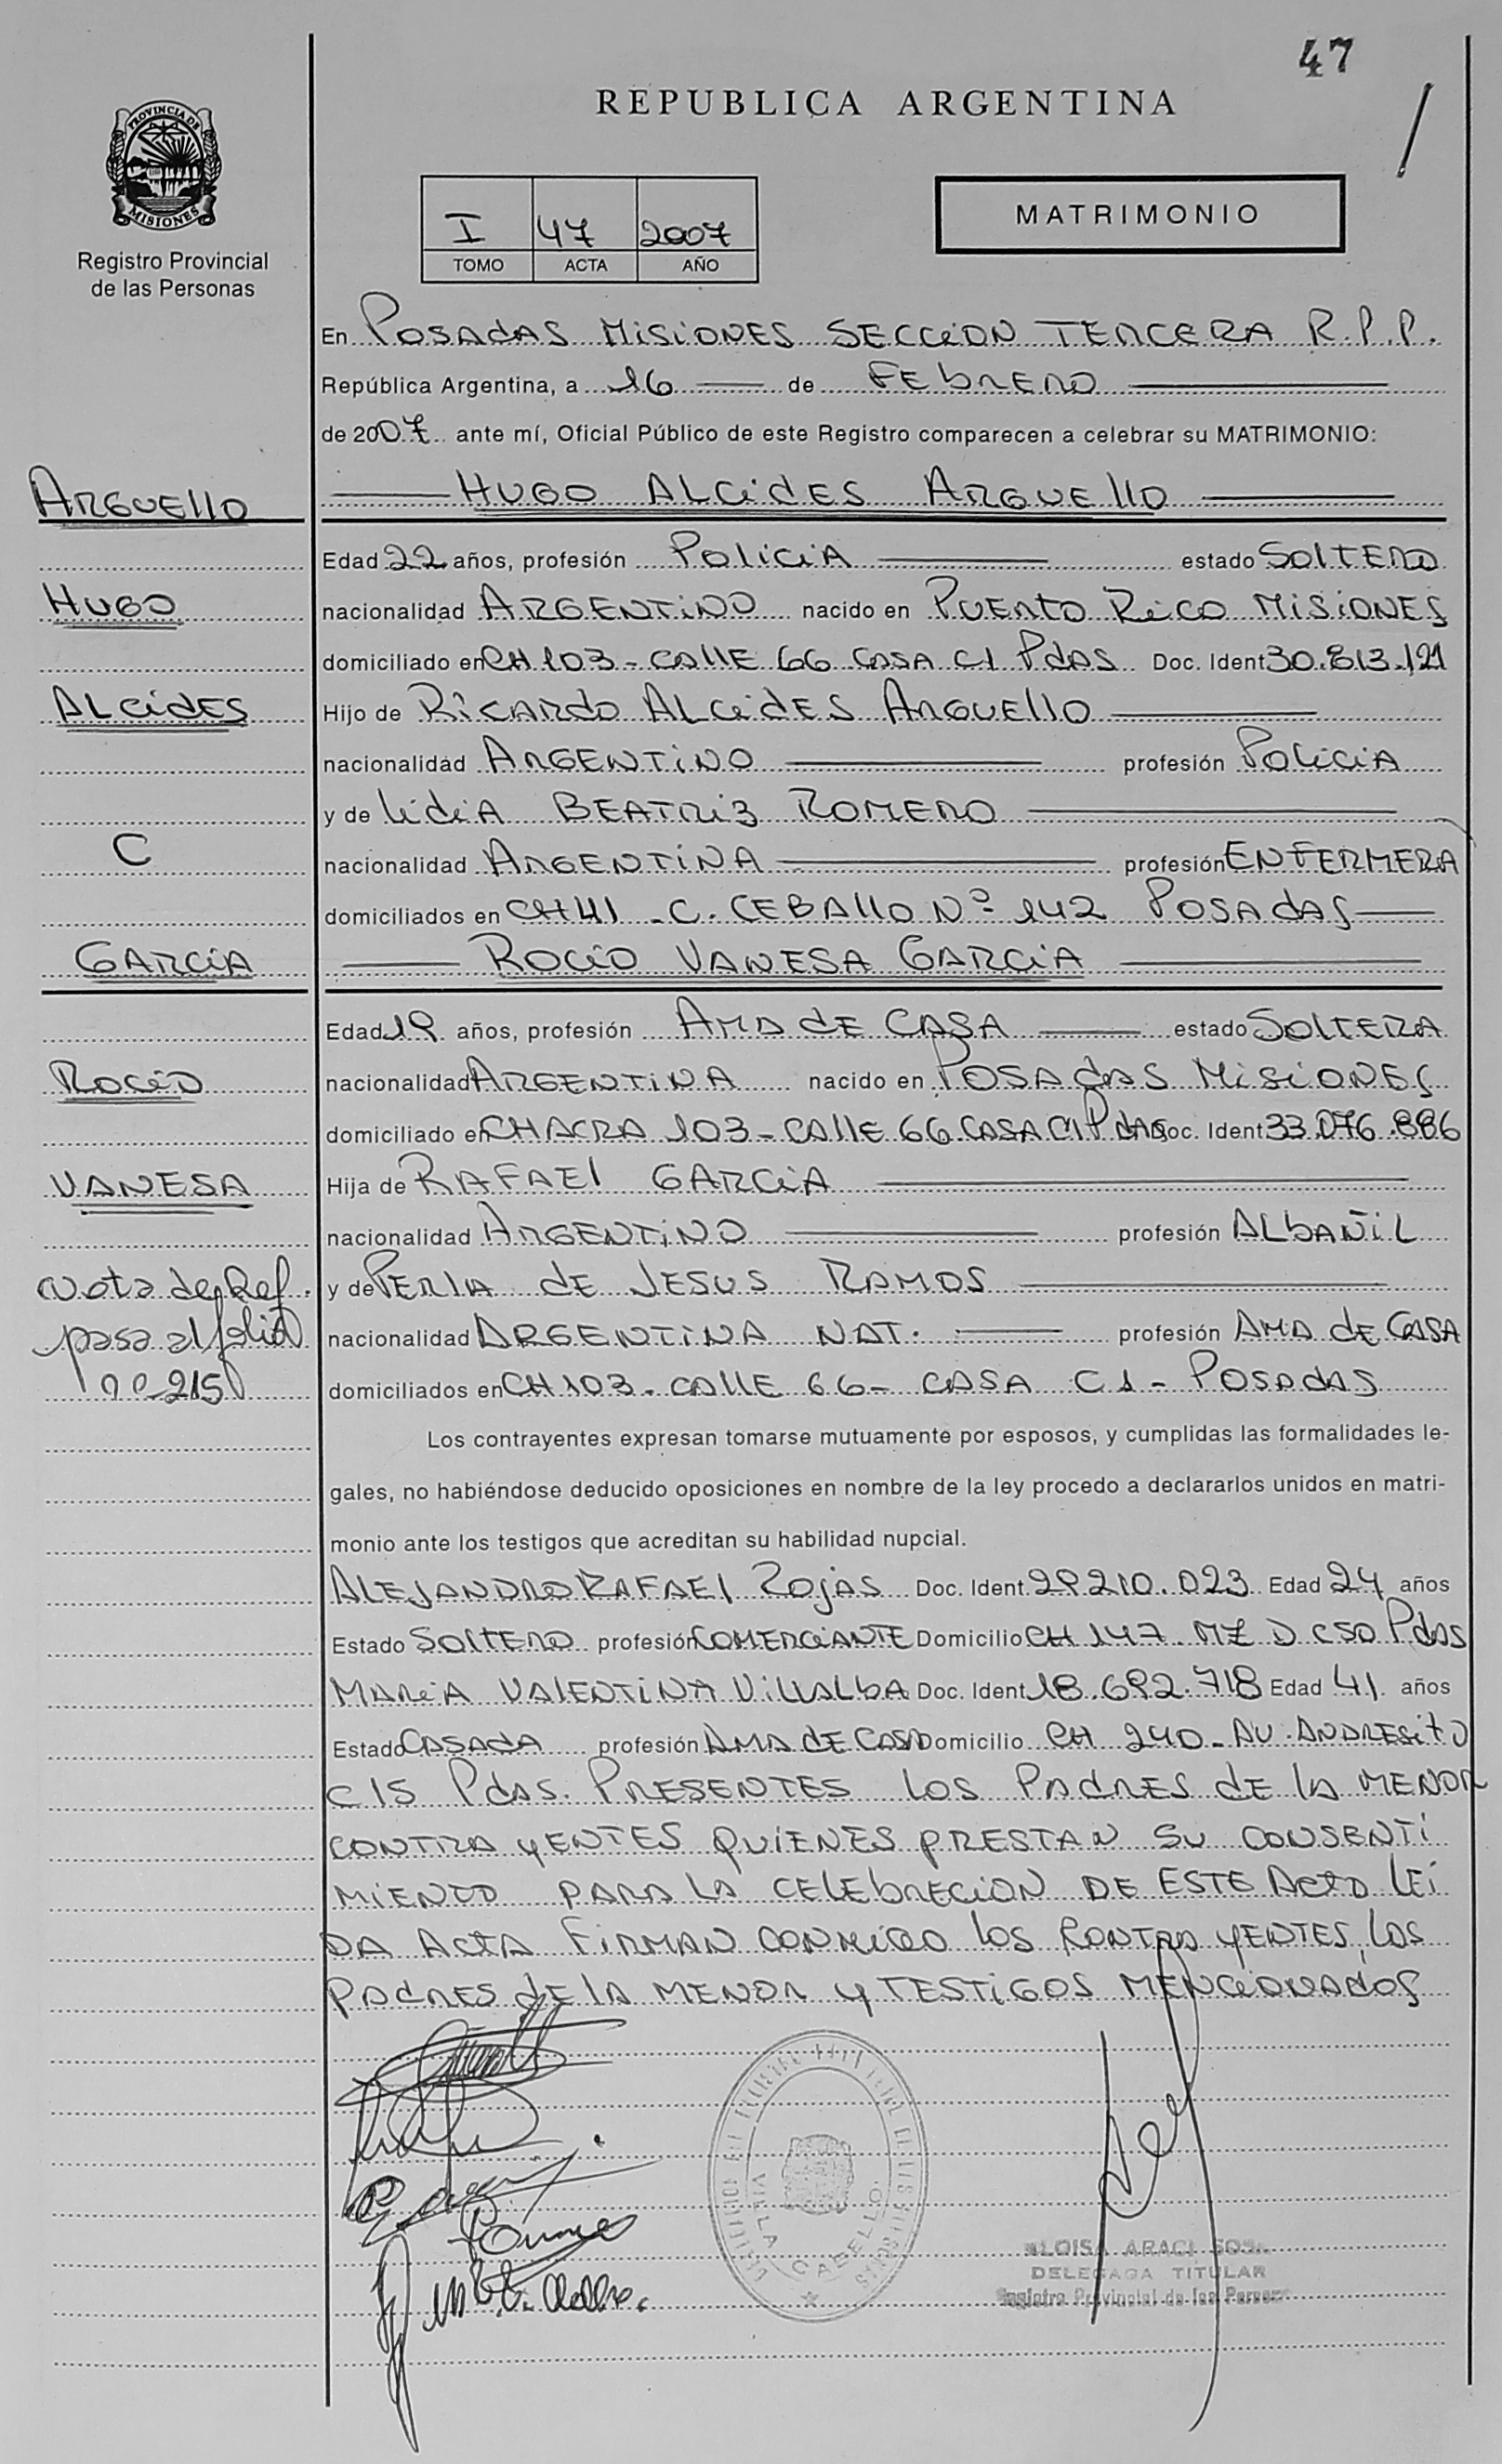 47
REPUBLICA ARGENTINA
PROVINCIA DE
MISIONES
Registro Provincial
de las Personas
I 47 2007
TOMO ACTA AÑO
MATRIMONIO
En POSADAS MISIONES SECCION TERCERA R.P.P.
República Argentina, a 16 de FEBRERO
de 2007 ante mí, Oficial Público de este Registro comparecen a celebrar su MATRIMONIO:
ARGUELLO HUGO ALCIDES ARGUELLO
Edad 22 años, profesión POLICIA estado SOLTERO
HUGO nacionalidad ARGENTINO nacido en PUERTO RICO MISIONES
domiciliado en CH 103 - CALLE 66 CASA C1 Pdas Doc. Ident 30.813.121
ALCIDES Hijo de RICARDO ALCIDES ARGUELLO
nacionalidad ARGENTINO profesión POLICIA
y de LIDIA BEATRIZ ROMERO
C nacionalidad ARGENTINA profesión ENFERMERA
domiciliados en CH 41 - C. CEBALLO Nº 142 POSADAS
GARCIA ROCIO VANESA GARCIA
Edad 19 años, profesión AMA DE CASA estado SOLTERA
ROCIO nacionalidad ARGENTINA nacido en POSADAS MISIONES
domiciliado en CHACRA 103 - CALLE 66 CASA C1 Pdas Doc. Ident 33.076.886
VANESA Hija de RAFAEL GARCIA
nacionalidad ARGENTINO profesión ALBAÑIL
Nota de Ref. y de PERLA DE JESUS RAMOS
pasa al folio nacionalidad ARGENTINA NAT. profesión AMA DE CASA
nº 215 domiciliados en CH 103 - CALLE 66 - CASA C1 - POSADAS
Los contrayentes expresan tomarse mutuamente por esposos, y cumplidas las formalidades le-
gales, no habiéndose deducido oposiciones en nombre de la ley procedo a declararlos unidos en matri-
monio ante los testigos que acreditan su habilidad nupcial.
ALEJANDRO RAFAEL ROJAS Doc. Ident. 29.210.023 Edad 24 años
Estado SOLTERO profesión COMERCIANTE Domicilio CH 147 - MZ D C50 Pdas
MARIA VALENTINA VILLALBA Doc. Ident 18.692.718 Edad 41 años
Estado CASADA profesión AMA DE CASA Domicilio CH 240 - AV. ANDRESITO
C15 Pdas. PRESENTES LOS PADRES DE LA MENOR
CONTRAYENTES QUIENES PRESTAN SU CONSENTI
MIENTO PARA LA CELEBRECION DE ESTE ACTO LEI
DA ACTA FIRMAN CONMIGO LOS CONTRAYENTES, LOS
PADRES DE LA MENOR Y TESTIGOS MENCIONADOS
VILLA CABELLO
ARACI SOSA
DELEGADA TITULAR
Registro Provincial de las Personas